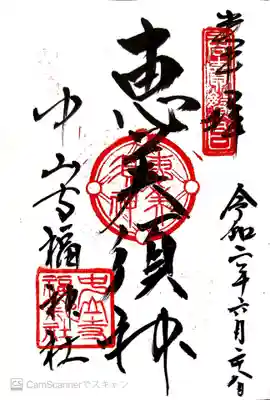 奉拝
恵美須神
中山寺福神社
令和二年六月
CamScannerでスキャン